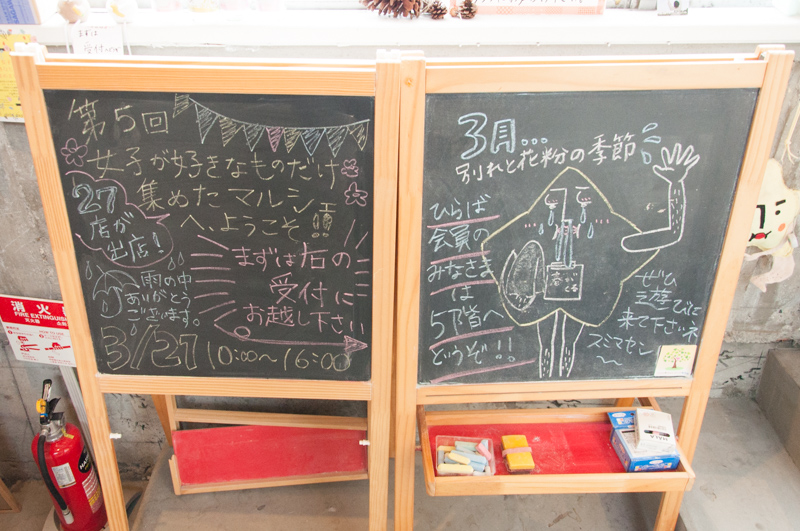 第5回
女子が好きなものだけ
集めたマルシェ
へ、ようこそ!!
27
店が
出店!
まずは右の
受付に
お越し下さい
雨の中
ありがとう
ございます。
3/27 10:00〜16:00
3月...
別れと花粉の季節
ひらば
会員の
みなさま
は
5階へ
どうぞ!!
ぜひ
遊びに
来て下さいネ
スミマセン
消火器
FIRE EXTINGUISHER